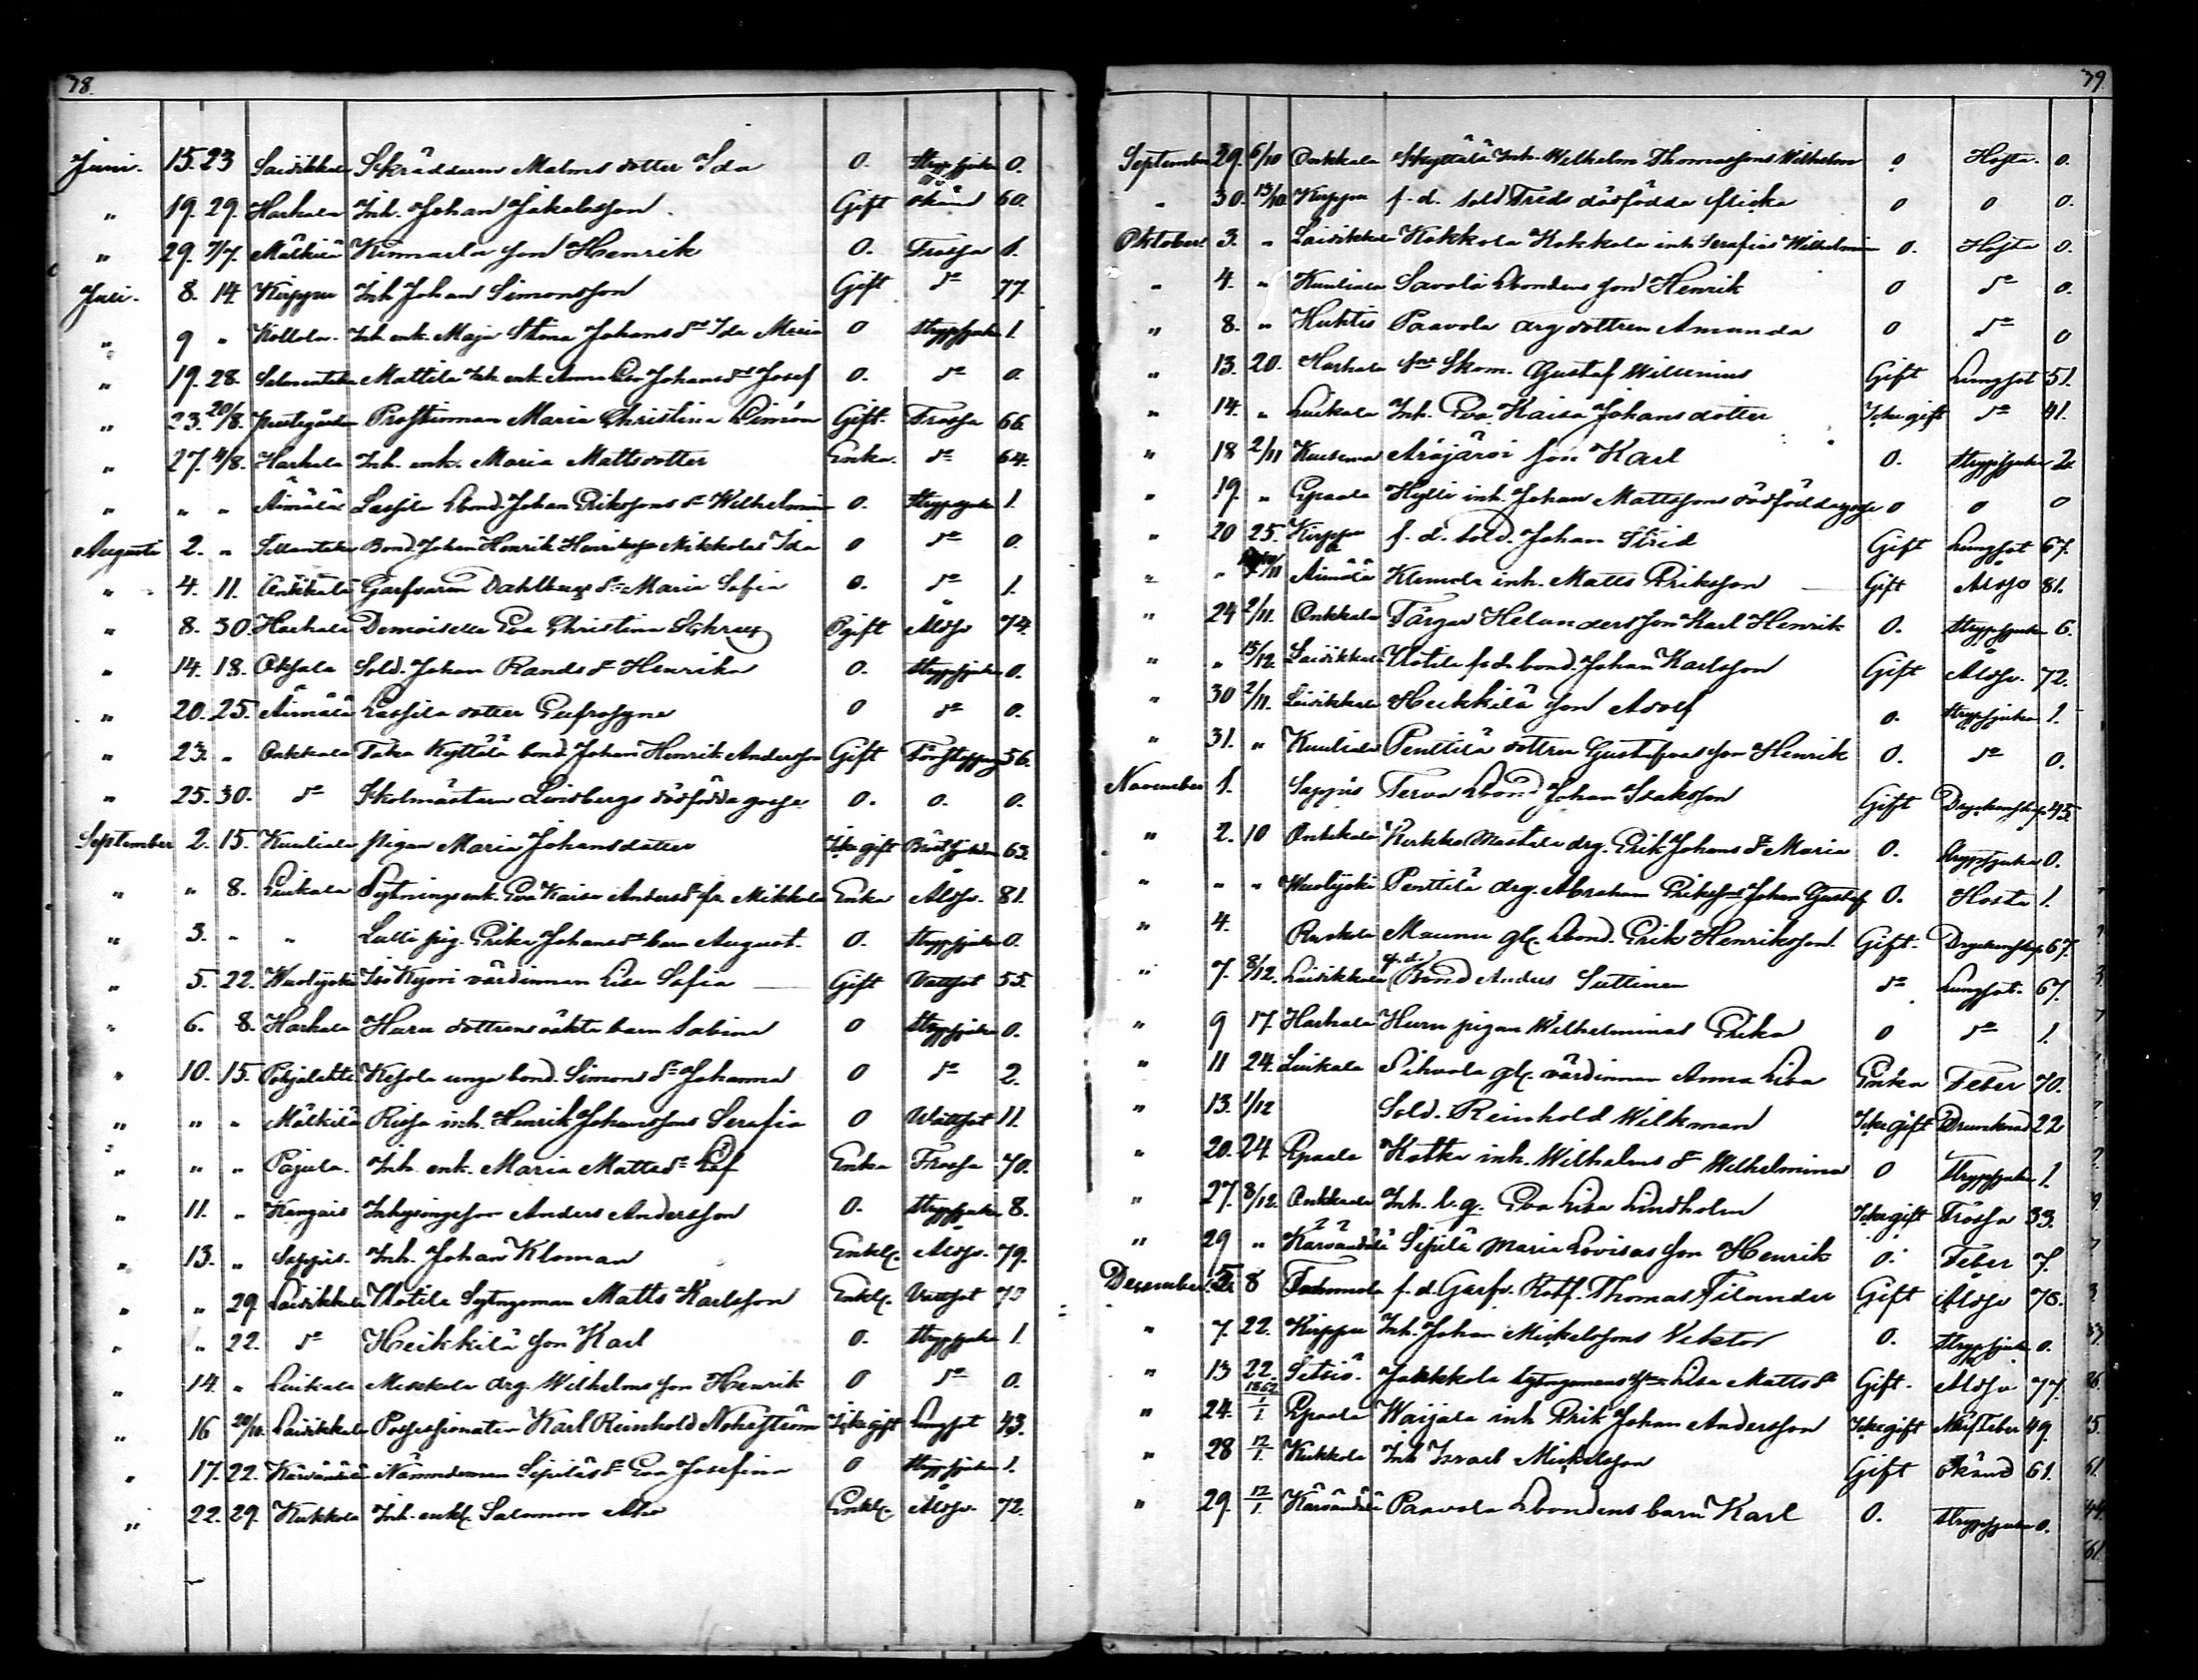 78.
Juni. 15. 23 Laidikkala Skräddaren Malms dotter Ida 0. Strypsjuka 0.
" 19. 29. Harhala Inh. Johan Jakobsson. Gift okänd 60.
" 29. 7/7. Mälkiä Kinnarla son Henrik 0. Trossa 1.
Juli. 8. 14 Kirppu Inh Johan Simonsson Gift do 77.
" 9 " Kollola. Inh. enk. Maja Stina Johans dr Ida Maria 0 Strypsjuka 1.
" 19. 28. Salmentaka Mattila Inh. enk. Anna Lisa Johansdrs Josef 0. do 0.
" 23. 20/8. Prestgården Prostinnan Maria Christina Limón Gift. Trossa 66.
" 27. 4/8. Harhala Inh. enk. Maria Mattsdotter Enka. do 64.
" " " Äimälä Lassila Lbond. Johan Erikssons dr Wilhelmina 0. Strypsjuka 1.
Augusti 2. " Bond. Johan Henrik Nikkolas Ida 0 do 0.
" 4. 11. Onkkala Garfvaren Dahlbergs dr Maria Sofia 0. do 1.
" 8. 30. Harhala Demoiselle Eva Christina Ogift Åldr. 74.
" 14. 18. Okjala Sold. Johan Rands dr Henrika 0. Strypsjuka 0.
" 20. 25. Äimälä Lassila dotter Eufrosyne 0 do 0.
" 23. " Onkkala Taka Kyttälä bond. Johan Henrik Andersson Gift Förstoppning 56.
" 25. 30. do Skolmästaren Lindbergs dödfödda gosse 0. 0. 0.
September 2. 15. Kuuliala pigan Maria Johansdotter Icke gift Bröstsjukdom 63.
" " 8. Luikala Sytningsenk. Eva Kaisa Andersdr fr. Mikkola Enka Åldr. 81.
" 3. " " Lalli pig. Erika Johansdrs barn August. 0. Strypsjuka 0.
" 5. 22. Wuolijoki Iso Kyöri värdinnan Lisa Sofia Gift Vattsot 55.
" 6. 8. Harhala Haru dottrens oäkta barn Sabina 0 Strypsjuka 0.
" 10. 15. Pohjalahti Kesola unga bond. Simons dr Johanna 0 do 2.
" " " Mälkilä Riisa inh. Henrik Johanssons Serafia 0 Wattsot 11.
" " " Pajula. Inh. enk. Maria Mattsdr Löf Enka Trossa 70.
" 11. " Kangais Inhysingeson Anders Andersson 0. Strypsjuka 8.
" 13. " Sappés. Inh. Johan Kloman Enkl. Åldr. 79.
" " 29 Laidikkala Uotila Sytngsman Matts Karlsson Enkl. Vattsot 73
" " 22. do Heikkilä son Karl 0. Strypsjuka 1.
" 14. " Luikala drg. Wilhelms son Henrik 0 do 0.
" 16 20/10. Laidikkala Possessionaten Karl Reinhold Nohrström Icke gift Lungsot 43.
" 17. 22. Kärsändälä Nämndeman Sipiläs dr Eva Josefina 0 Strypsjuka 1.
" 22. 29. Kukkola Inh. enkl. Salomon Enkl. Åldr. 72.
79.
September 29. 6/10 Onkkala Kyttälä Inh. Wilhelm Thomassons Wilhelm 0 Hosta. 0.
" 30. 13/10 Kirppu f. d. Sold Freds dödfödda flicka 0 0 0.
Oktober 3. " Laidikkala Kokkola inh Serafias Wilhelmina 0. Hosta 0.
" 4. " Kuuliala Savola Lbondens son Henrik 0 do 0.
" 8. " Huhtis Paavola drg dottren Amanda 0 do 0
" 13. 20. Harhala Skom. Gustaf Willenius Gift Lungsot 51.
" 14. " Luikala Inh. Eva Kaisa Johansdotter Icke gift do 41.
" 18 2/11 Kuurema Äräjärvi son Karl 0. Strypsjuka 2.
" 19. " Epaala Hylli inh. Johan Mattssons dödfödda gosse 0 0 0
" 20 25. Kirppu f. d. Sold. Johan Strid Gift Lungsot 67.
" " Äimälä Klemola inh. Matts Eriksson Gift Åldr 81.
" 24 2/11. Onkkala Färgar Helanders son Karl Henrik 0. Strypsjuka 6.
" " 15/12. Laidikkala Uotila f. d. bond. Johan Karlsson Gift Åldr. 72.
" 30 2/11. Laidikkala Heikkilä son Adolf 0. Strypsjuka 1.
" 31. " Kuuliala Penttilä dottren Gustafvas son Henrik 0. do 0.
November 1. Sappés Terva Lbond Johan Isaksson Gift Dryckenskap 45.
" 2. 10 Onkkala Kirkko Mastala drg. Erik Johans dr Maria 0. Strypsjuka 0.
" " " Wuolijoki Penttilä drg. Abraham Erikssons Johan Gustaf 0. Hosta 1.
" 4. Maunu gl. Lbond. Erik Henriksson. Gift. Dryckenskap 67.
" 7. 8/12. Laidikkala f. d. Bond Anders Suttinen do Lungsot. 67.
" 9 17. Harhala Huru pigan Wilhelminas Erika 0 do 1.
" 11 24. Luikala Sihvola gl. värdinnan Anna Lisa Enka Feber 70.
" 13. 1/12 Sold. Reinhold Wilkman Icke gift Drunknad 22
" 20. 24. Epaala Kotka inh. Wilhelms dr Wilhelmina 0 Strypsjuka 1.
" 27. 8/12. Onkkala Inh. l. q. Eva Lisa Lindholm Icke gift Trossa 33.
" 29 " Kärsändälä Sipilä Maria Lovisas son Henrik 0. Feber 7.
December 5. 8 f. d. Garfv. Rolf. Thomas Filander Gift Åldr 78.
" 7. 22. Kirppu Inh. Johan Mickelssons Viktor 0. Strypsjuka 0.
" 13 22. Jakkola Lisa Matts dr Gift. Åldr 77.
" 24. 1862 1/1 Epaala Waijala inh Erik Johan Andersson Icke gift Nerffeber 49.
" 28 12/1. Kukkola Inh Israel Mickelsson Gift okänd 61.
" 29. 12/1. Kärsändälä Paavola Lbondens barn Karl 0. Strypsjuka 0.